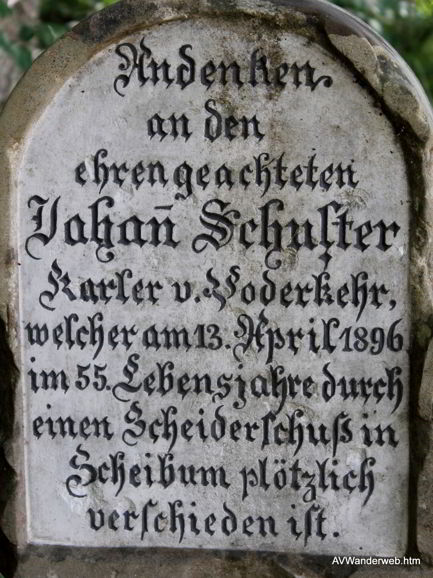 Andenken
an den
ehrengeachteten
Johan̄ Schuster
Karler v. Voderkehr,
welcher am 13. April 1896
im 55. Lebensjahre durch
einen Scheiderschuß in
Scheibum plötzlich
verschieden ist.
AVWanderweb.htm